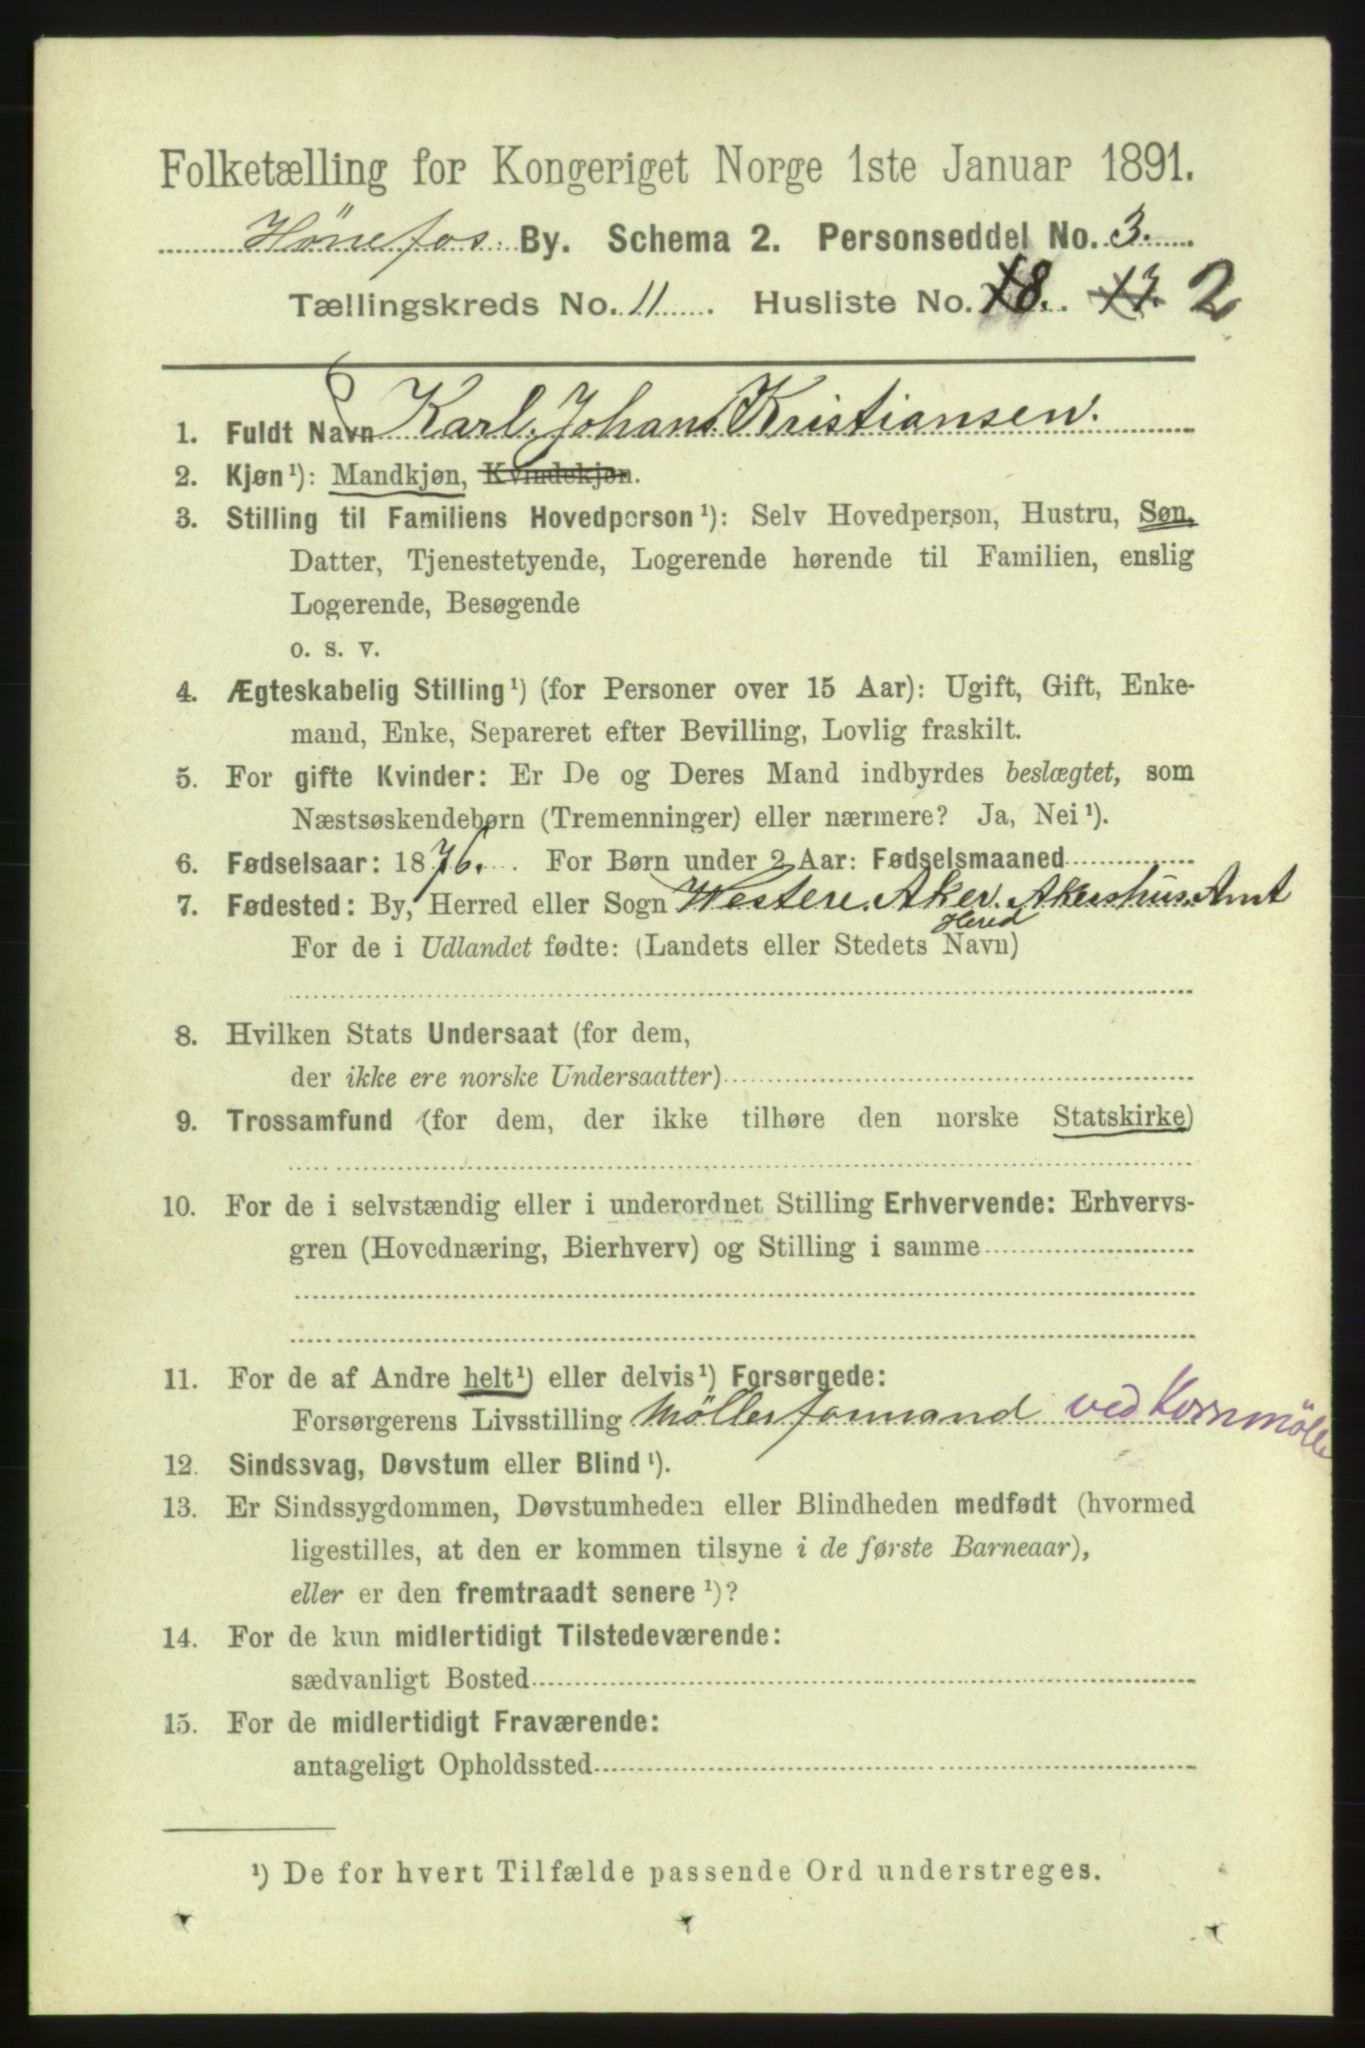 Folketælling for Kongeriget Norge 1ste Januar 1891.
Hönefos By. Schema 2. Personseddel No. 3.
Tællingskreds No. 11. Husliste No. 18. 17. 2
1. Fuldt Navn Karl Johans Kristiansen.
2. Kjøn¹): Mandkjøn, Kvindekjøn.
3. Stilling til Familiens Hovedperson¹): Selv Hovedperson, Hustru, Søn,
Datter, Tjenestetyende, Logerende hørende til Familien, enslig
Logerende, Besøgende
o. s. v.
4. Ægteskabelig Stilling¹) (for Personer over 15 Aar): Ugift, Gift, Enke-
mand, Enke, Separeret efter Bevilling, Lovlig fraskilt.
5. For gifte Kvinder: Er De og Deres Mand indbyrdes beslægtet, som
Næstsøskendebørn (Tremenninger) eller nærmere? Ja, Nei¹).
6. Fødselsaar: 1876. For Børn under 2 Aar: Fødselsmaaned
7. Fødested: By, Herred eller Sogn Westere Aker. Akershus Amt
Hered
For de i Udlandet fødte: (Landets eller Stedets Navn)
8. Hvilken Stats Undersaat (for dem,
der ikke ere norske Undersaatter)
9. Trossamfund (for dem, der ikke tilhøre den norske Statskirke)
10. For de i selvstændig eller i underordnet Stilling Erhvervende: Erhvervs-
gren (Hovednæring, Bierhverv) og Stilling i samme
11. For de af Andre helt¹) eller delvis¹) Forsørgede:
Forsørgerens Livsstilling Möllerformand ved Kornmölle
12. Sindssvag, Døvstum eller Blind¹).
13. Er Sindssygdommen, Døvstumheden eller Blindheden medfødt (hvormed
ligestilles, at den er kommen tilsyne i de første Barneaar),
eller er den fremtraadt senere¹)?
14. For de kun midlertidigt Tilstedeværende:
sædvanligt Bosted
15. For de midlertidigt Fraværende:
antageligt Opholdssted
¹) De for hvert Tilfælde passende Ord understreges.